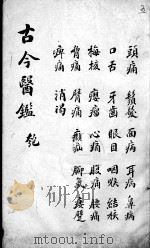 頭痛 鬚髮 面病 耳病 鼻病
口舌 牙齒 眼目 咽喉 結核
梅核 癭瘤 心痛 腹痛 腰痛
臂痛 脚氣 痿躄
痹痛 消渴
古今醫鑑